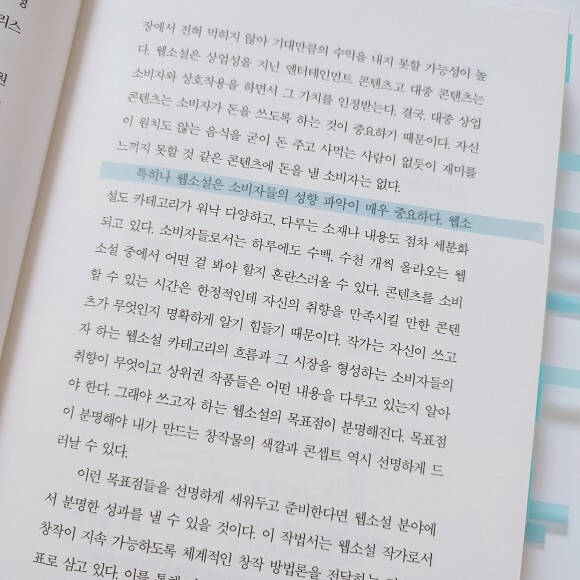 리스
원
장에서 전혀 먹히지 않아 기대만큼의 수익을 내지 못할 가능성이 높
다. 웹소설은 상업성을 지닌 엔터테인먼트 콘텐츠고 대중 콘텐츠는
소비자와 상호작용을 하면서 그 가치를 인정받는다. 결국, 대중 상업
콘텐츠는 소비자가 돈을 쓰도록 하는 것이 중요하기 때문이다. 자신
이 원치도 않는 음식을 굳이 돈 주고 사먹는 사람이 없듯이 재미를
느끼지 못할 것 같은 콘텐츠에 돈을 낼 소비자는 없다.
특히나 웹소설은 소비자들의 성향 파악이 매우 중요하다. 웹소
설도 카테고리가 워낙 다양하고, 다루는 소재나 내용도 점차 세분화
되고 있다. 소비자들로서는 하루에도 수백, 수천 개씩 올라오는 웹
소설 중에서 어떤 걸 봐야 할지 혼란스러울 수 있다. 콘텐츠를 소비
할 수 있는 시간은 한정적인데 자신의 취향을 만족시킬 만한 콘텐
츠가 무엇인지 명확하게 알기 힘들기 때문이다. 작가는 자신이 쓰고
자 하는 웹소설 카테고리의 흐름과 그 시장을 형성하는 소비자들의
취향이 무엇이고 상위권 작품들은 어떤 내용을 다루고 있는지 알아
야 한다. 그래야 쓰고자 하는 웹소설의 목표점이 분명해진다. 목표점
이 분명해야 내가 만드는 창작물의 색깔과 콘셉트 역시 선명하게 드
러날 수 있다.
이런 목표점들을 선명하게 세워두고 준비한다면 웹소설 분야에
서 분명한 성과를 낼 수 있을 것이다. 이 작법서는 웹소설 작가로서
창작이 지속 가능하도록 체계적인 창작 방법론을 전달하는
표로 삼고 있다. 이를 통해